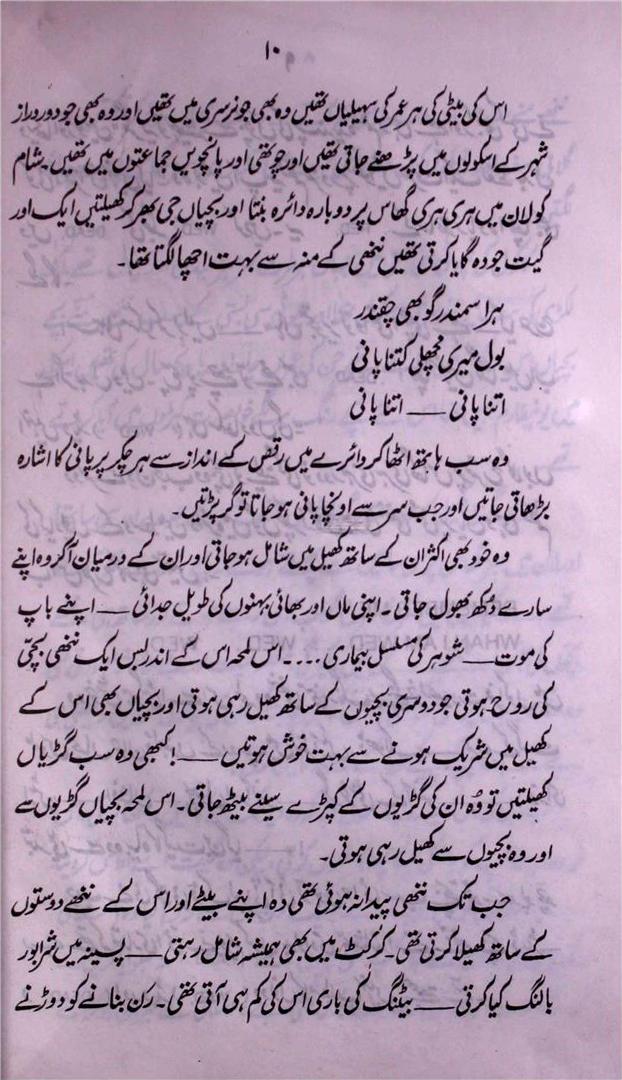 ۱۰
اس کی بیٹی کی ہر عمر کی سہیلیاں تھیں وہ بھی جو نرسری میں تھیں اور وہ بھی جو دور دراز
شہر کے اسکولوں میں پڑھنے جاتی تھیں اور چوتھی اور پانچویں جماعتوں میں تھیں۔ شام
کو لان میں ہری ہری گھاس پر دوبارہ دائرہ بنتا اور بچیاں جی بھر کر کھیلتیں ایک اور
گیت جو وہ گایا کرتی تھیں ننھی کے منہ سے بہت اچھا لگتا تھا۔
ہرا سمندر گوبھی چقندر
بول میری مچھلی کتنا پانی
اتنا پانی ـــ اتنا پانی
وہ سب ہاتھ اٹھا کر دائرے میں رقص کے انداز سے ہر چکر پر پانی کا اشارہ
بڑھاتی جاتیں اور جب سر سے اونچا پانی ہو جاتا تو گر پڑتیں۔
وہ خود بھی اکثر ان کے ساتھ کھیل میں شامل ہو جاتی اور ان کے درمیان آکر وہ اپنے
سارے دُکھ بھول جاتی۔ اپنی ماں اور بھائی بہنوں کی طویل جدائی ـــ اپنے باپ
کی موت ـــ شوہر کی مسلسل بیماری .... اس لمحہ اس کے اندر بس ایک ننھی بچّی
کی روح ہوتی جو دوسری بچیوں کے ساتھ کھیل رہی ہوتی اور بچیاں بھی اس کے
کھیل میں شریک ہونے سے بہت خوش ہوتیں ـــ! کبھی وہ سب گڑیاں
کھیلتیں تو وُہ ان کی گڑیوں کے کپڑے سینے بیٹھ جاتی۔ اس لمحہ بچیاں گڑیوں سے
اور وہ بچیوں سے کھیل رہی ہوتی۔
جب تک ننھی پیدا نہ ہوئی تھی وہ اپنے بیٹے اور اس کے ننھے دوستوں
کے ساتھ کھیلا کرتی تھی۔ کرکٹ میں بھی ہمیشہ شامل رہتی ـــ پسینہ میں شرابور
بالنگ کیا کرتی ـــ بیٹنگ کی باری اس کی کم ہی آتی تھی۔ رَن بنانے کو دوڑنے